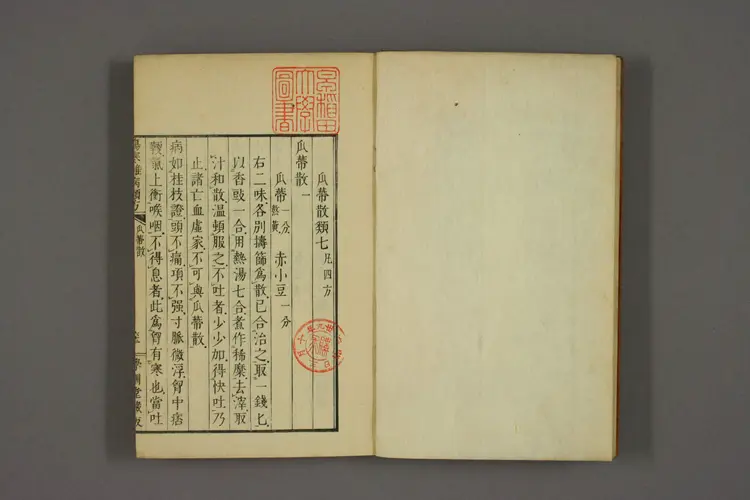 瓜蔕散類七凡四方
瓜蔕散一
瓜蔕一分熬黃 赤小豆一分
右二味各別擣篩爲散已合治之取一錢匕
以香豉一合用熱湯七合煮作稀糜去滓取
汁和散溫頓服之不吐者少少加得快吐乃
止諸亡血虛家不可與瓜蔕散
病如桂枝證頭不痛項不强寸脈微浮胷中痞
鞕氣上衝喉咽不得息者此爲胷有寒也當吐
瓜蔕散
早稻田大學圖書